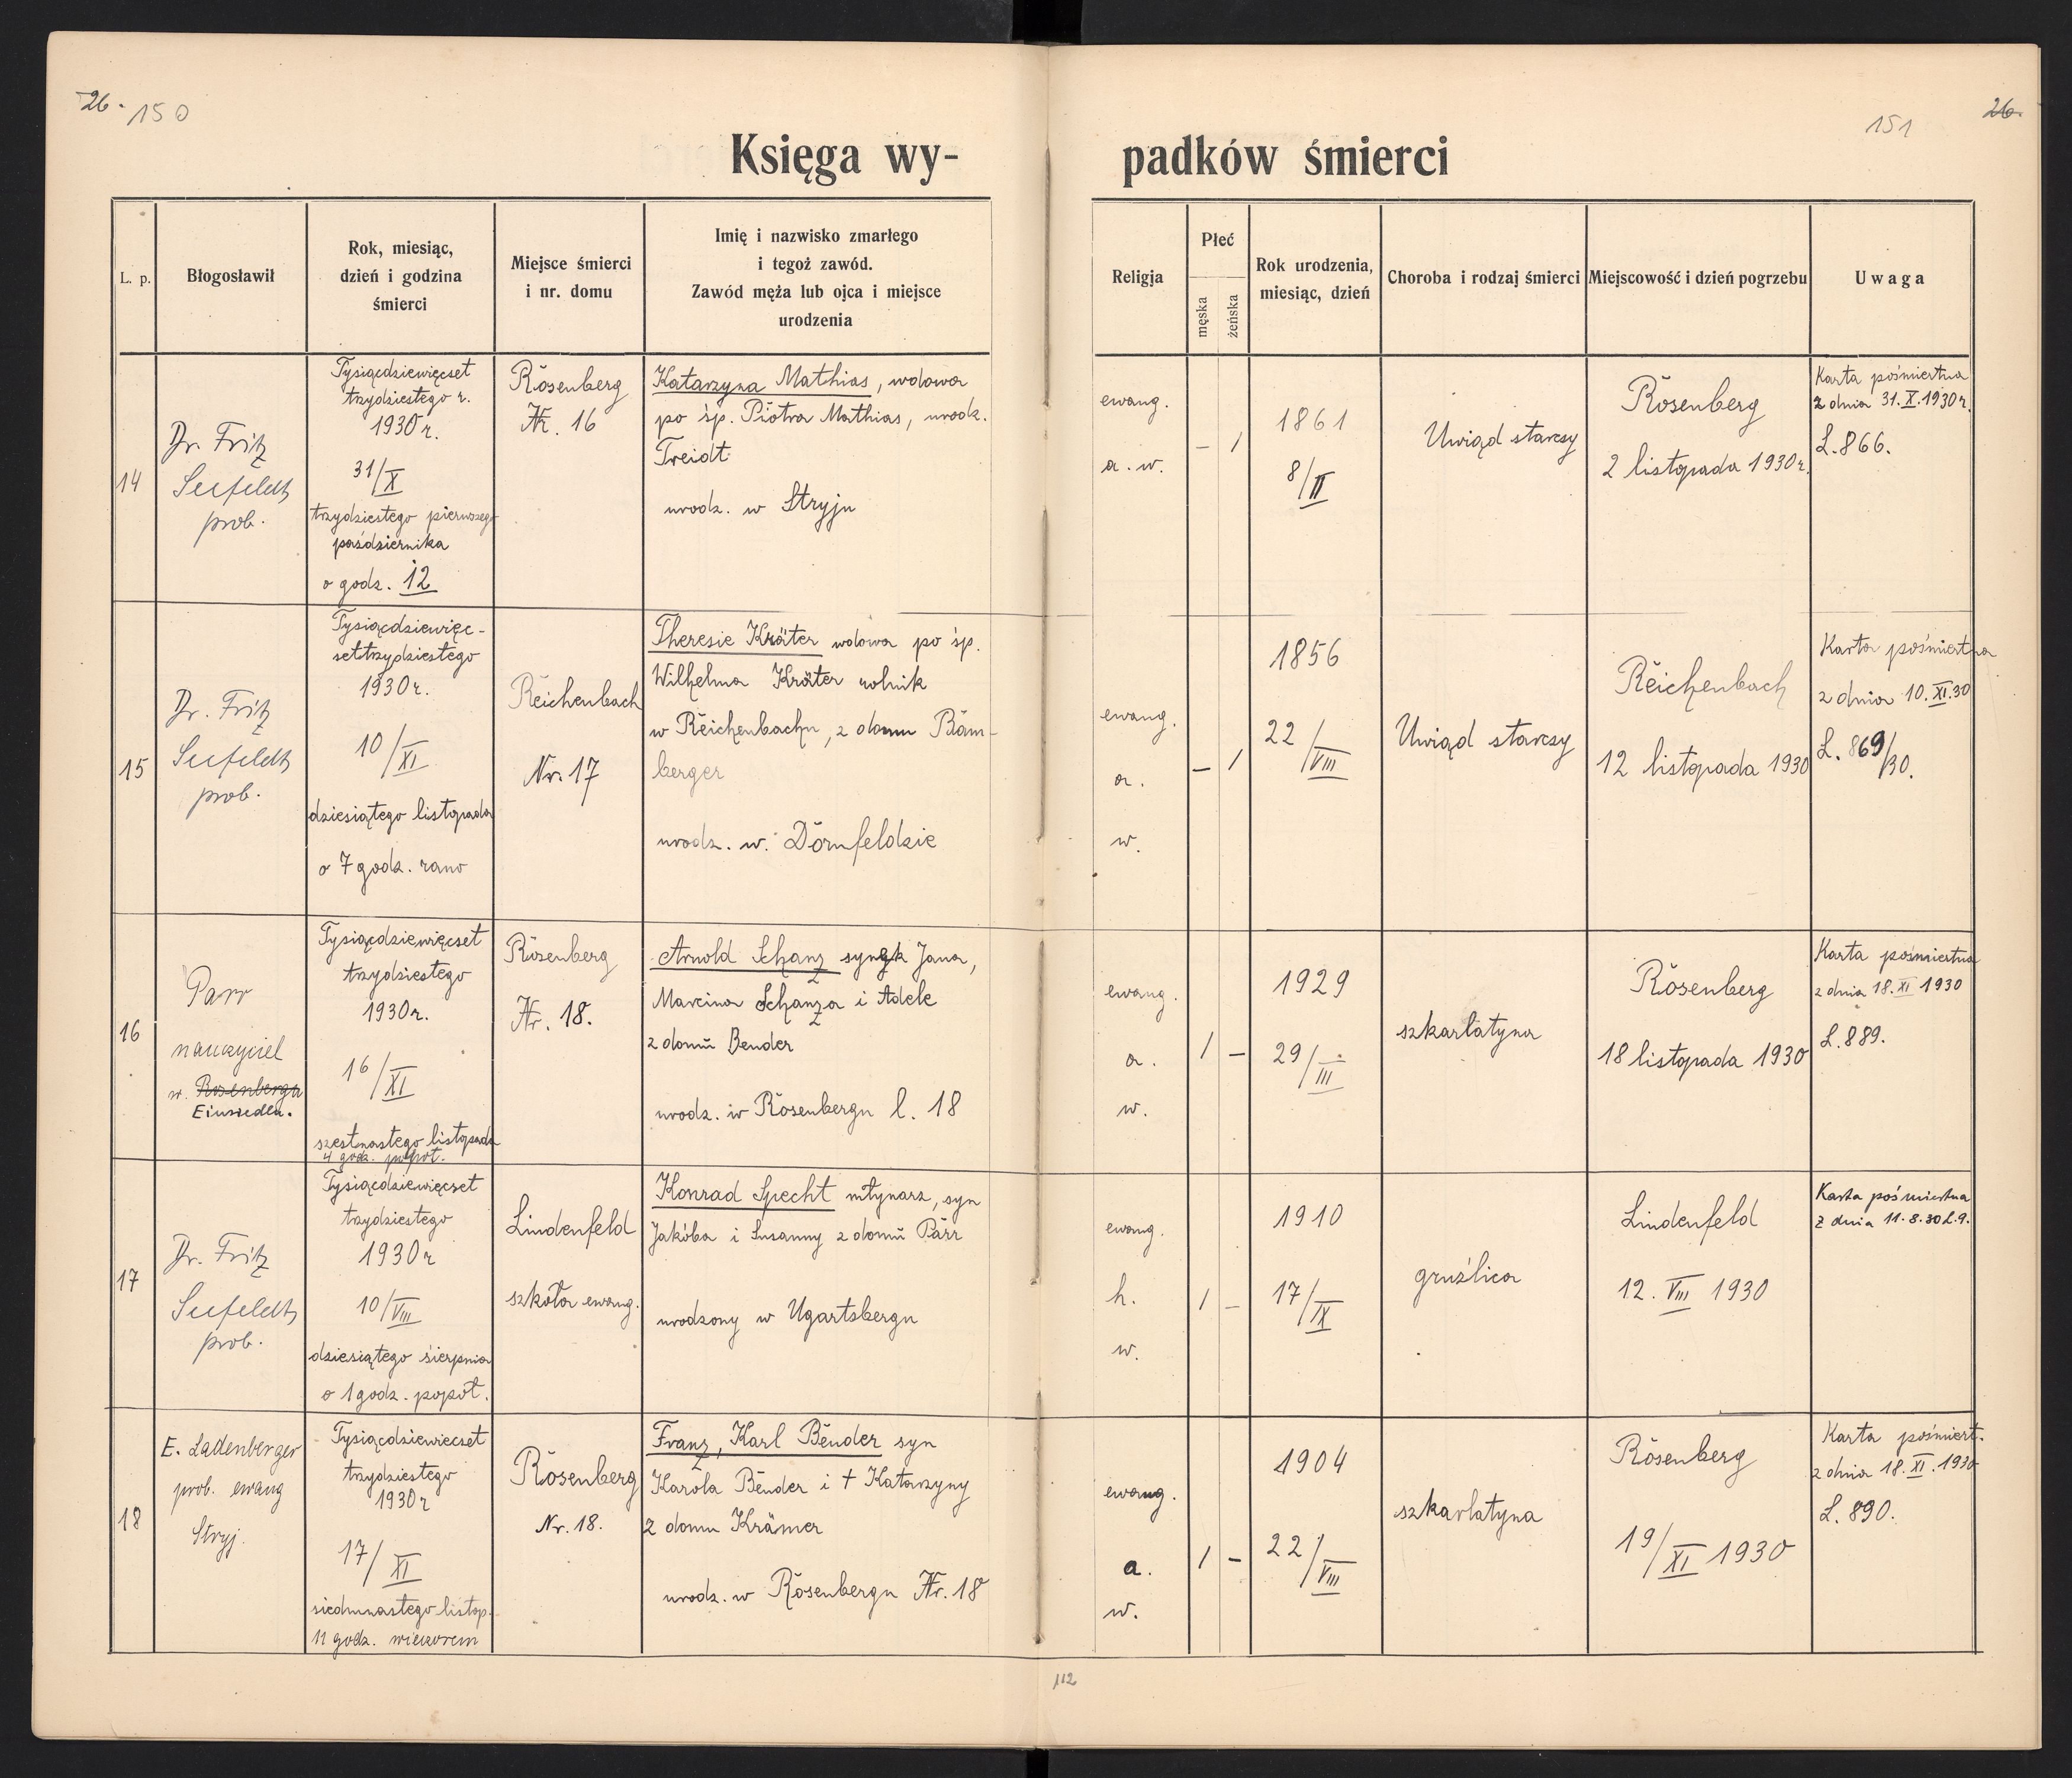 26. 150
151 26.
Księga wy- padków śmierci
L. p.
Błogosławił
Rok, miesiąc,
dzień i godzina
śmierci
Miejsce śmierci
i nr. domu
Imię i nazwisko zmarłego
i tegoż zawód.
Zawód męża lub ojca i miejsce
urodzenia
Religja
Płeć
męska
żeńska
Rok urodzenia,
miesiąc, dzień
Choroba i rodzaj śmierci
Miejscowość i dzień pogrzebu
Uwaga
14
Dr. Fritz
Seefeldt
prob.
Tysiącdziewięcset
trzydziestego r.
1930 r.
31/X
trzydziestego pierwszego
października
o godz. 12
Rosenberg
Nr. 16
Katarzyna Mathias, wdowa
po śp. Piotra Mathias, urodz.
Treidt
urodz. w Stryju
ewang.
a. w.
– 1
1861
8/II
Uwiąd starczy
Rosenberg
2 listopada 1930 r.
Karta pośmiertna
z dnia 31.X.1930 r.
L. 866.
15
Dr. Fritz
Seefeldt
prob.
Tysiącdziewięc-
settrzydziestego
1930 r.
10/XI
dziesiątego listopada
o 7 godz. rano
Reichenbach
Nr. 17
Theresie Kräter wdowa po śp.
Wilhelma Kräter rolnik
w Reichenbachu, z domu Bam-
berger
urodz. w. Dornfeldzie
ewang.
a.
w.
– 1
1856
22/VIII
Uwiąd starczy
Reichenbach
12 listopada 1930
Karta pośmiertna
z dnia 10.XI.30
L. 869/30.
16
Parr
nauczyciel
w. Rosenbergu
Einsiedla.
Tysiącdziewięcset
trzydziestego
1930 r.
16/XI
szestnastego listopada
4 godz. popoł.
Rosenberg
Nr. 18.
Arnold Schanz synek Jana,
Marcina Schanza i Adele
z domu Bender
urodz. w Rosenbergu l. 18
ewang.
a.
w.
1 –
1929
29/III
szkarlatyna
Rosenberg
18 listopada 1930
Karta pośmiertna
z dnia 18.XI 1930
L. 889.
17
Dr. Fritz
Seefeldt
prob.
Tysiącdziewięcset
trzydziestego
1930 r
10/VIII
dziesiątego sierpnia
o 1 godz. popoł.
Lindenfeld
szkoła ewang.
Konrad Specht młynarz, syn
Jakóba i Susanny z domu Parr
urodzony w Ugartsbergu
ewang.
h.
w.
1 –
1910
17/IX
gruźlica
Lindenfeld
12. VIII 1930
Karta pośmiertna
z dnia 11.8.30 L.9.
18
E. Ladenberger
prob. ewang
Stryj.
Tysiącdziewiecset
trzydziestego
1930 r
17/XI
siedmnastego listop.
11 godz. wieczorem
Rosenberg
Nr. 18.
Franz, Karl Bender syn
Karola Bender i + Katarzyny
z domu Krämer
urodz. w Rosenbergu Nr. 18
ewang.
a.
w.
1 –
1904
22/VIII
szkarlatyna
Rosenberg
19/XI 1930
Karta pośmiert.
z dnia 18.XI.1930
L. 890.
112